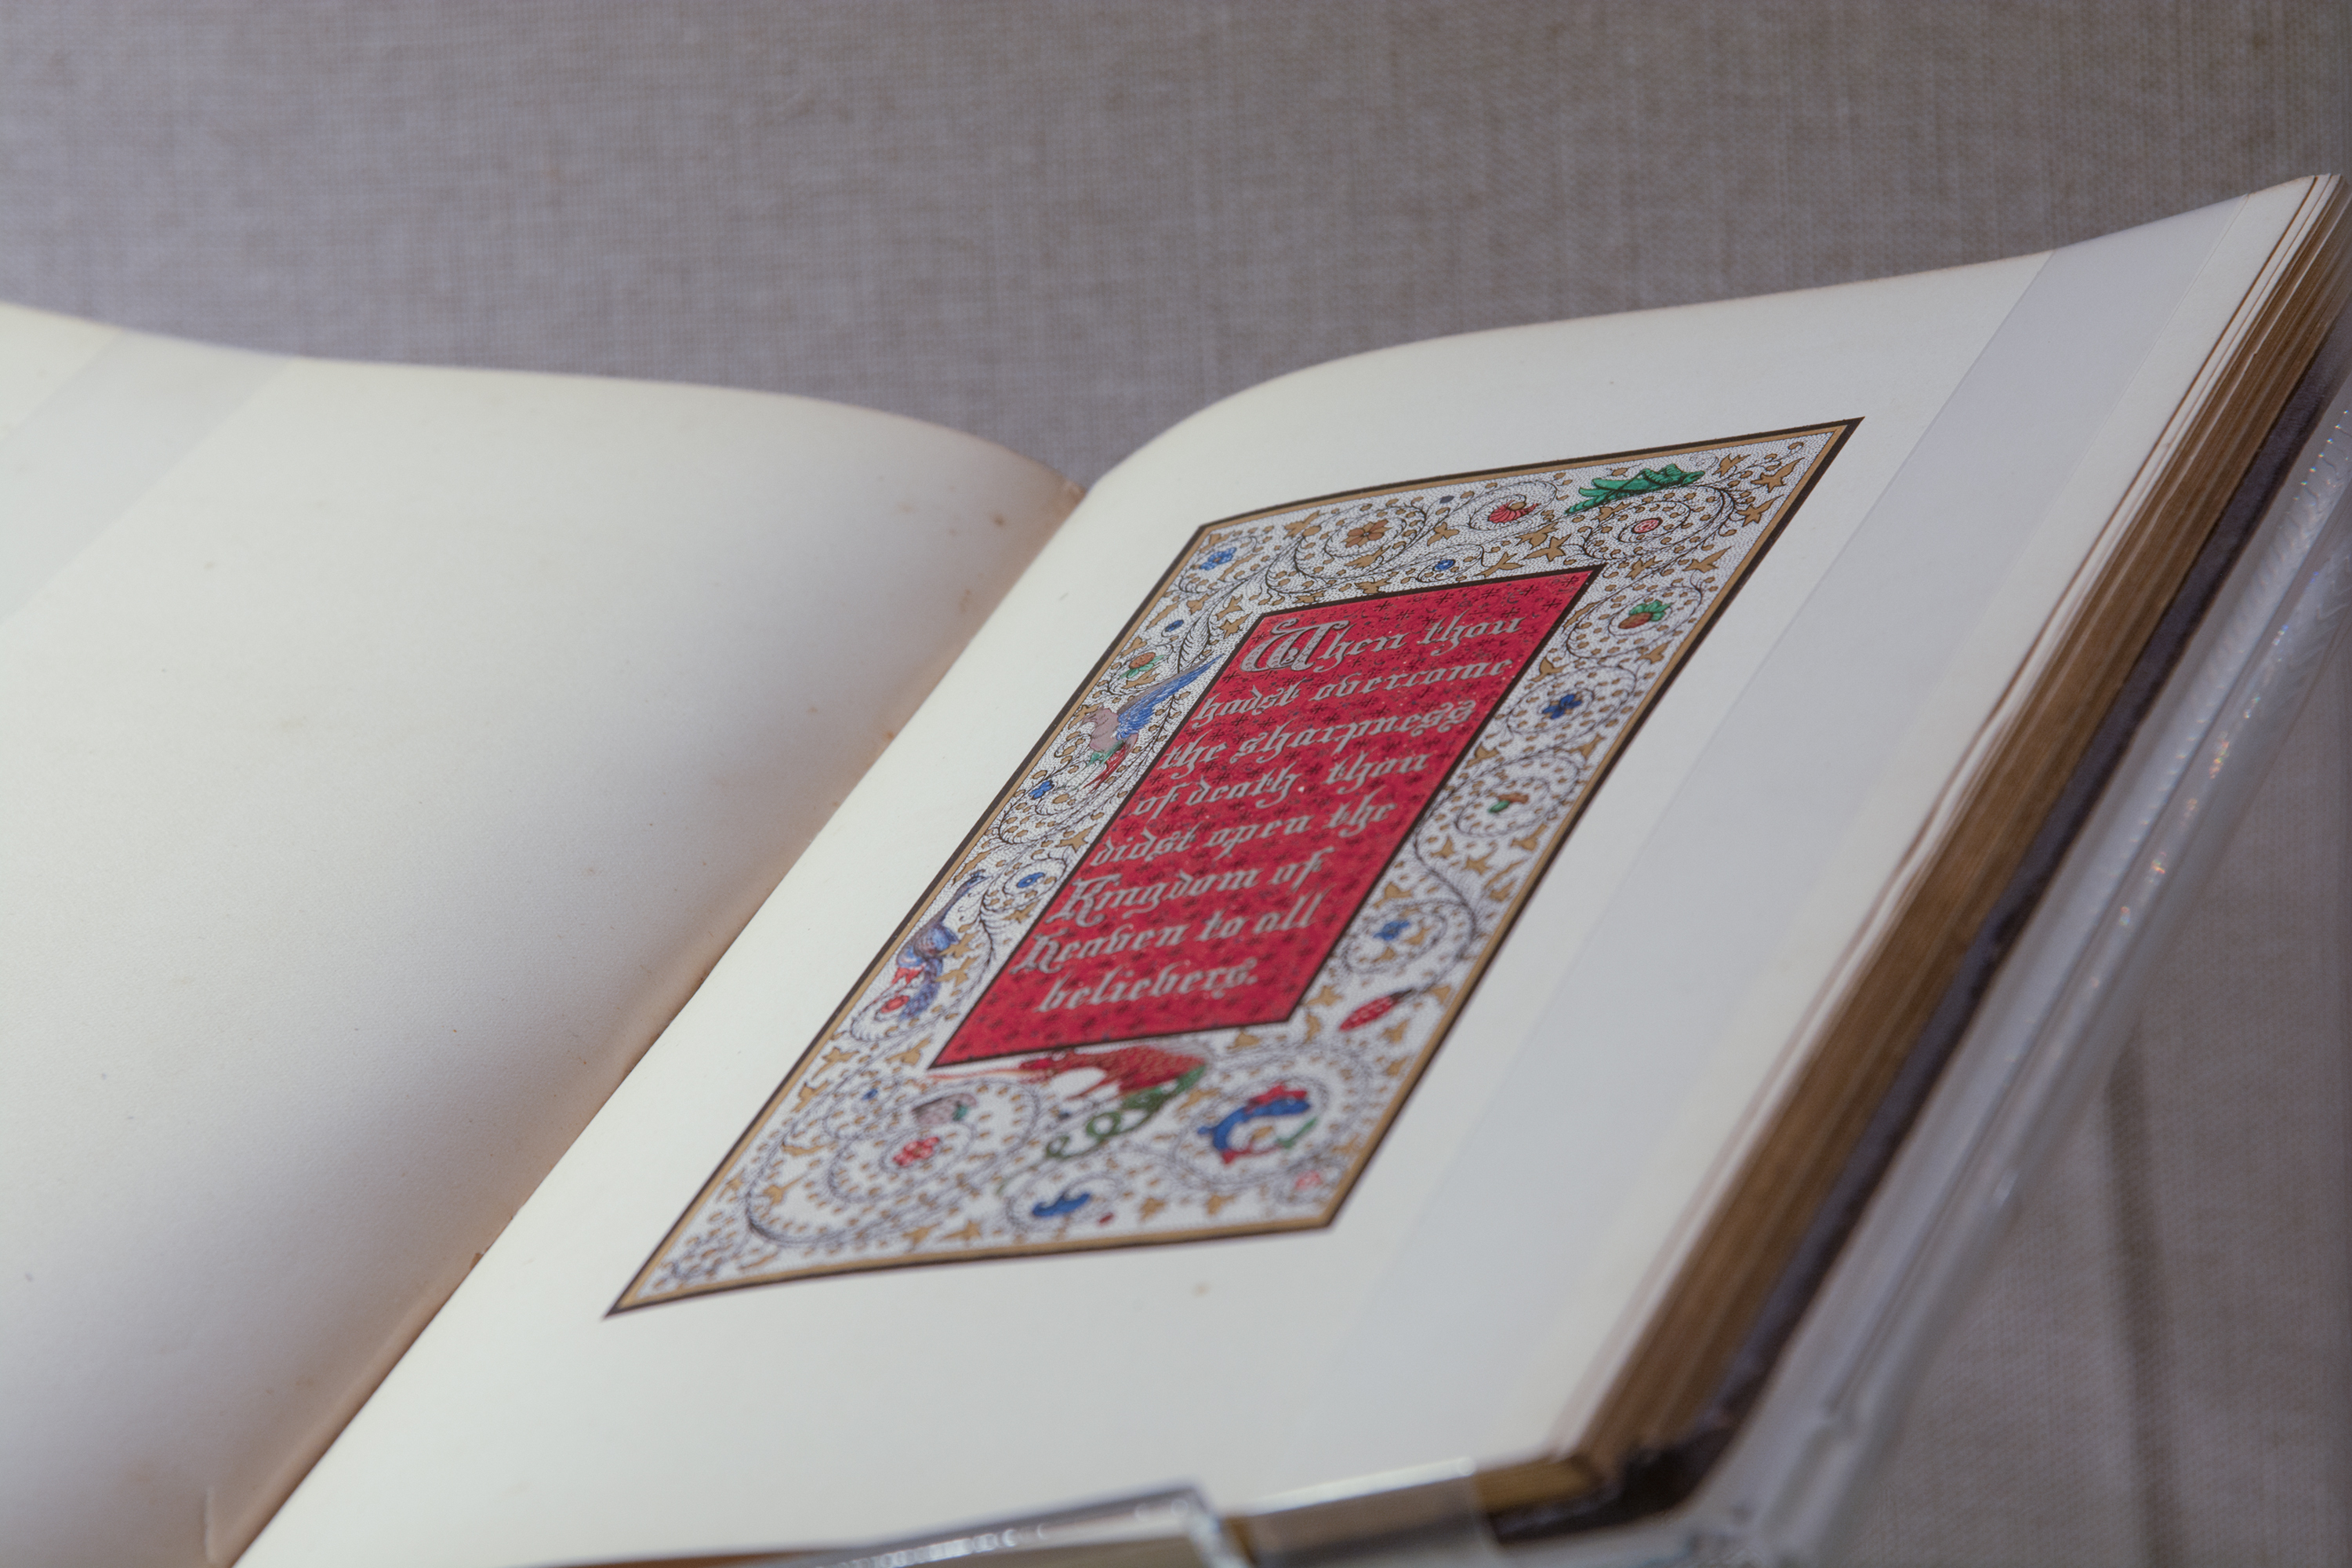 When thou
hadst overcome
the sharpness
of death thou
didst open the
Kingdom of
Heaven to all
believers.